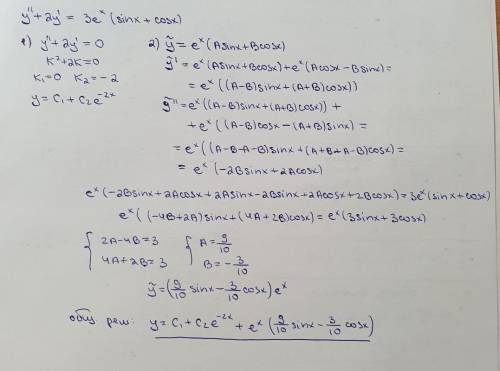 y'' + 2y' = 3eˣ(sinx + cosx)
1) y'' + 2y' = 0
K² + 2K = 0
K₁ = 0 K₂ = -2
y = C₁ + C₂e⁻²ˣ
2) ỹ = eˣ(Asinx + Bcosx)
ỹ' = eˣ(Asinx + Bcosx) + eˣ(Acosx - Bsinx) =
= eˣ((A-B)sinx + (A+B)cosx))
ỹ'' = eˣ((A-B)sinx + (A+B)cosx)) +
+ eˣ((A-B)cosx - (A+B)sinx) =
= eˣ((A-B-A-B)sinx + (A+B+A-B)cosx) =
= eˣ(-2Bsinx + 2Acosx)
eˣ(-2Bsinx + 2Acosx + 2Asinx - 2Bsinx + 2Acosx + 2Bcosx) = 3eˣ(sinx + cosx)
eˣ((-4B + 2A)sinx + (4A + 2B)cosx) = eˣ(3sinx + 3cosx)
{ 2A - 4B = 3 { A = 9/10
4A + 2B = 3 B = -3/10
ỹ = (9/10 sinx - 3/10 cosx)eˣ
общ реш: y = C₁ + C₂e⁻²ˣ + eˣ(9/10 sinx - 3/10 cosx)